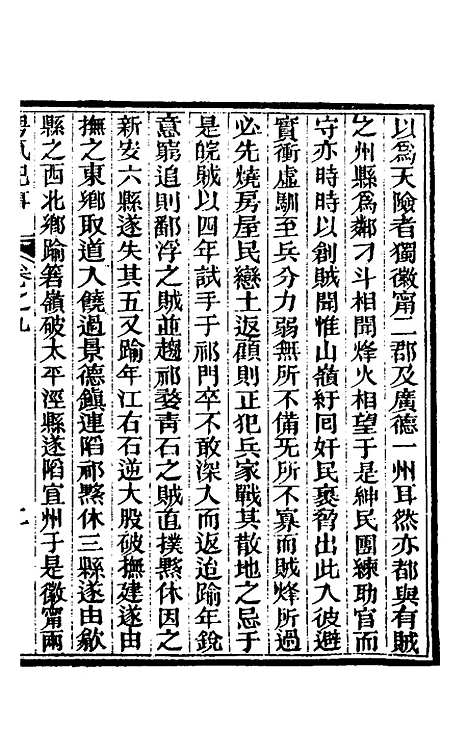 以爲天險者獨徽甯二郡及廣德一州耳然亦都與有賊
之州縣爲鄰刁斗相聞烽火相望于是紳民團練助官而
守亦時時以創賊聞惟山嶺紆囘奸民裹脅出此入彼避
實衝虛馴至兵分力弱無所不備旡所不寡而賊烽所過
必先燒房屋民戀土返顧則正犯兵家戰其散地之忌于
是皖賊以四年試手于祁門卒不敢深入而返迨踰年銳
意窮追則鄱浮之賊並趨祁婺靑石之賊直撲黟休因之
新安六縣遂失其五又踰年江右石逆大股破撫建遂由
撫之東鄉取道入饒過景德鎭連陷祁黟休三縣遂由歙
縣之西北鄉踰箬嶺破太平涇縣遂陷宜州于是徽甯兩
粤氛紀事
卷之九